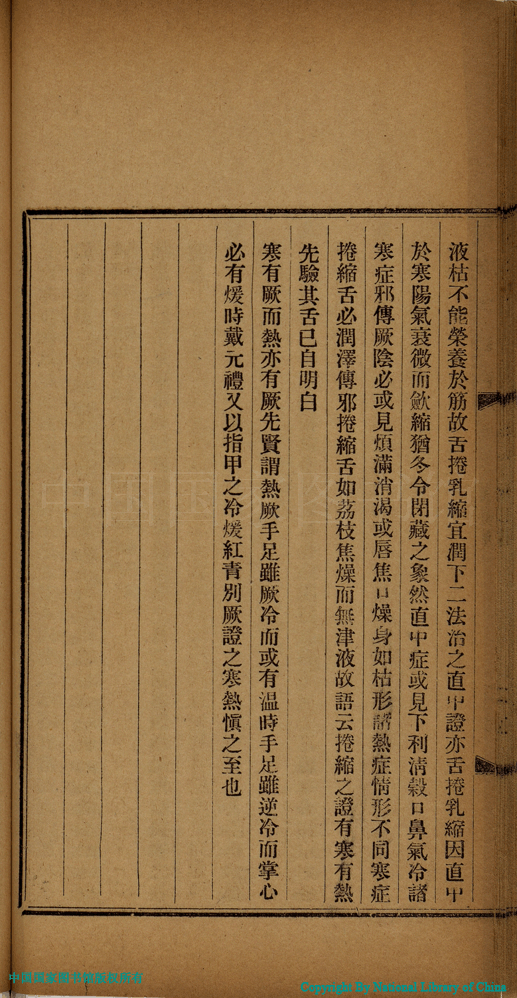 液枯不能榮養於筋故舌捲乳縮宜潤下二法治之直中證亦舌捲乳縮因直中
於寒陽氣衰微而歛縮猶冬令閉藏之象然直中症或見下利淸穀口鼻氣冷諸
寒症邪傳厥陰必或見煩滿消渴或唇焦口燥身如枯形諸熱症情形不同寒症
捲縮舌必潤澤傳邪捲縮舌如荔枝焦燥而無津液故語云捲縮之證有寒有熱
先驗其舌已自明白
寒有厥而熱亦有厥先賢謂熱厥手足雖厥冷而或有溫時手足雖逆冷而掌心
必有煖時戴元禮又以指甲之冷煖紅青別厥證之寒熱愼之至也
中國国家图书馆版权所有
Copyright By National Library of China